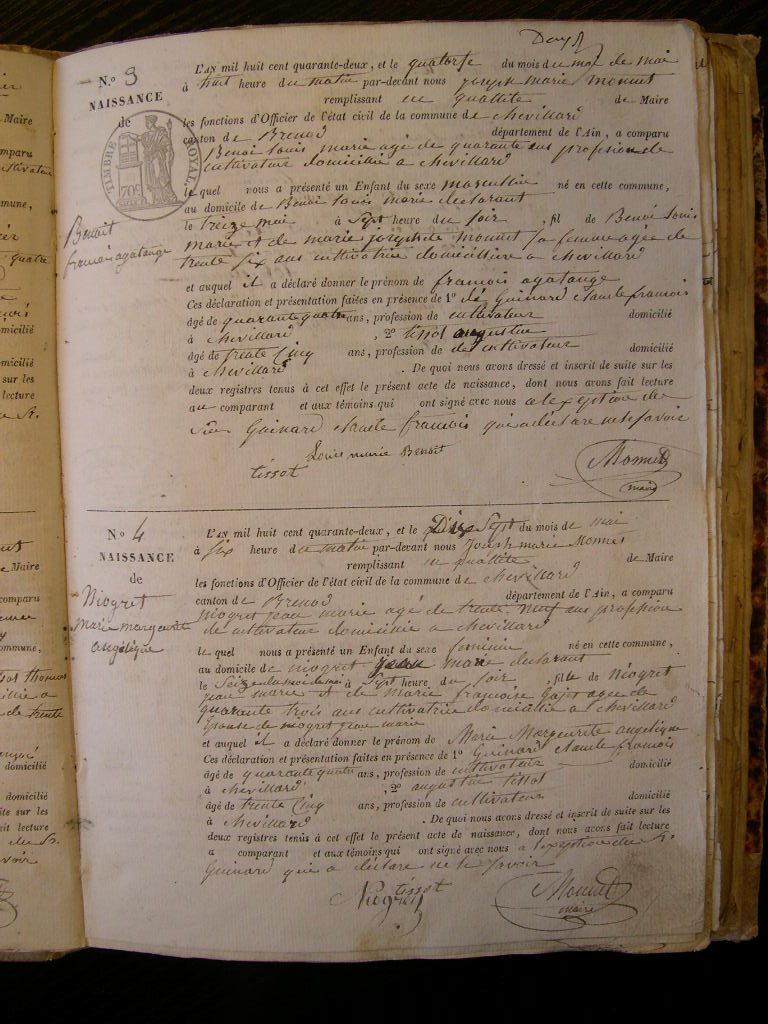 N.º 3
NAISSANCE
de
TIMBRE ROYAL
70c
Benoit
francois agatange
L'AN mil huit cent quarante-deux, et le quatorse du mois du moi de mai
à huit heure du matin par-devant nous joseph marie monnet
remplissant en quallité de Maire
les fonctions d'Officier de l'état civil de la commune de chevillard
canton de Brenod département de l'Ain, a comparu
Benoi Louis marie agé de quarante ans profesion de
cultivateur domicilié a chevillard
le quel nous a présenté un Enfant du sexe masculin né en cette commune,
au domicile de Benoi Louis marie declarant
le treize mai à Sept heure du soir , fil de Benoi Louis
marie et de marie josephte monnet sa femme agée de
trente six ans cultivatrice domicilière a chevillard
et auquel il a déclaré donner le prénom de francois agatange
Ces déclaration et présentation faites en présence de 1º de Guinard claude francois
âgé de quarante quatre ans, profession de cultivateur domicilié
à chevillard , 2º tissot augustin
âgé de trente Cinq ans, profession de de cultivateur domicilié
à chevillard . De quoi nous avons dressé et inscrit de suite sur les
deux registres tenus à cet effet le présent acte de naissance, dont nous avons fait lecture
au comparant et aux témoins qui ont signé avec nous a lexseption de
Guinard claude francois qui a declare ne le savoir
Louis marie Benoit
tissot
Monnet
maire
N.º 4
NAISSANCE
de
Niogret
Marie margeurite
angelique
L'AN mil huit cent quarante-deux, et le Dix Sept du mois de mai
à six heure du matin par-devant nous Joseph marie Monnet
remplissant en quallité de Maire
les fonctions d'Officier de l'état civil de la commune de chevillard
canton de Brenod département de l'Ain, a comparu
niogret jean marie agé de trente neuf ans profession
de cultivateur domicilié a chevillard
le quel nous a présenté un Enfant du sexe feminin né en cette commune,
au domicile de niogret jean marie declarant
le Seize du moi de mai à Sept heure du soir , fille de Niogret
jean marie et de marie francoise agée de
quarante trois ans cultivatrice domicilié a chevillard
Epouse de niogret jean marie
et auquel il a déclaré donner le prénom de Marie Margeurite angelique
Ces déclaration et présentation faites en présence de 1º Guinard claude francois
âgé de quarante quatre ans, profession de cultivateur domicilié
à chevillard , 2º augustin tissot
âgé de trente Cinq ans, profession de cultivateur domicilié
à chevillard . De quoi nous avons dressé et inscrit de suite sur les
deux registres tenus à cet effet le présent acte de naissance, dont nous avons fait lecture
a comparant et aux témoins qui ont signé avec nous a lexseption du
Guinard qui a déclare ne le savoir
tissot
Niogret
Monnet
maire